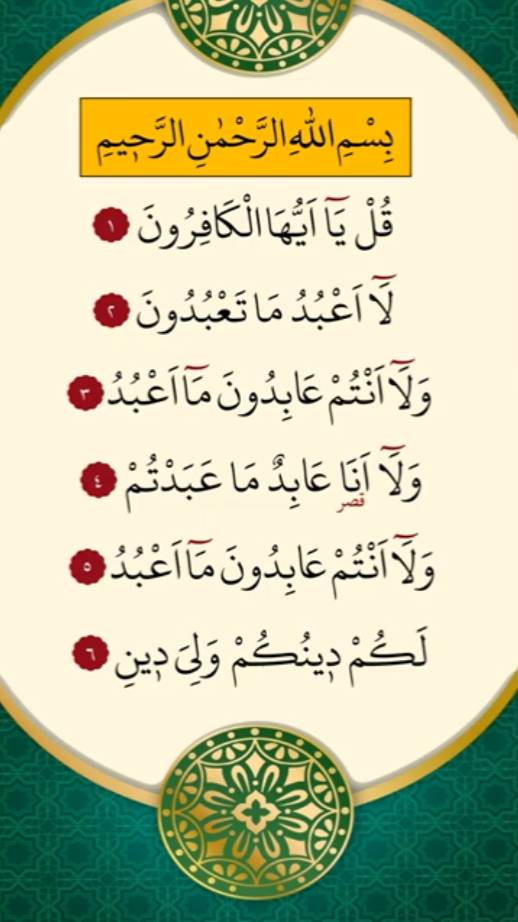 بِسْمِ اللهِ الرَّحْمٰنِ الرَّح۪يمِ
قُلْ يَٓا اَيُّهَا الْكَافِرُونَ ١
لَٓا اَعْبُدُ مَا تَعْبُدُونَ ٢
وَلَٓا اَنْتُمْ عَابِدُونَ مَٓا اَعْبُدُ ٣
وَلَٓا اَنَا عَابِدٌ مَا عَبَدْتُمْ ٤
قصر
وَلَٓا اَنْتُمْ عَابِدُونَ مَٓا اَعْبُدُ ٥
لَكُمْ د۪ينُكُمْ وَلِيَ د۪ينِ ٦